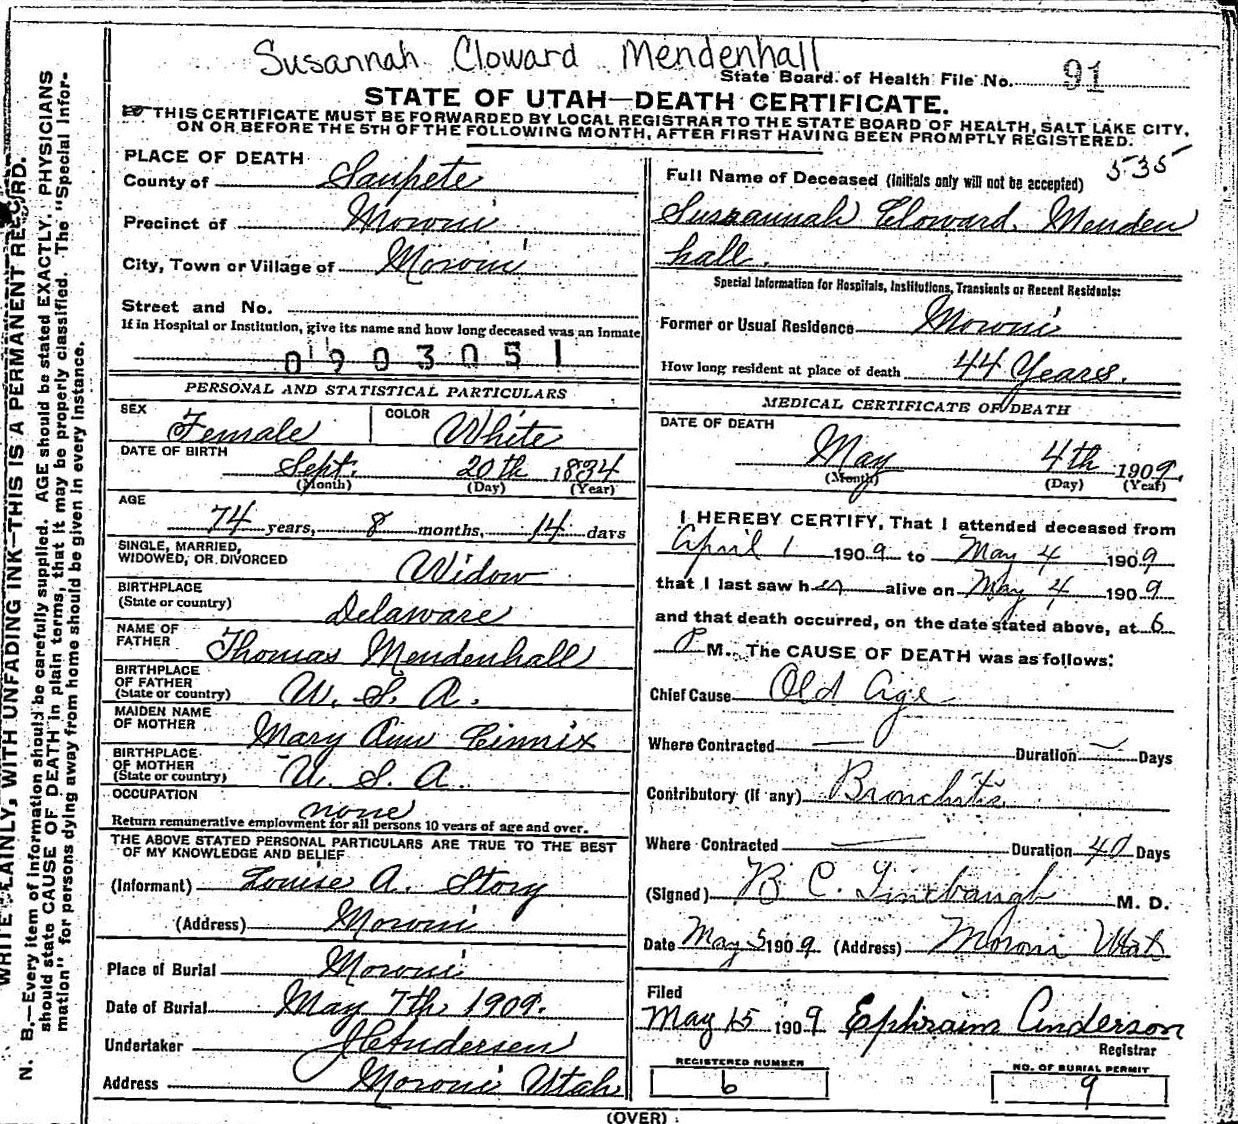 Susannah Cloward Mendenhall
State Board of Health File No. 91
STATE OF UTAH—DEATH CERTIFICATE.
THIS CERTIFICATE MUST BE FORWARDED BY LOCAL REGISTRAR TO THE STATE BOARD OF HEALTH, SALT LAKE CITY,
ON OR BEFORE THE 5TH OF THE FOLLOWING MONTH, AFTER FIRST HAVING BEEN PROMPTLY REGISTERED.
535
PLACE OF DEATH
County of Sanpete
Precinct of Moroni
City, Town or Village of Moroni
Street and No.
If in Hospital or Institution, give its name and how long deceased was an inmate
0903051
PERSONAL AND STATISTICAL PARTICULARS
SEX Female COLOR White
DATE OF BIRTH
Sept. 20th 1834
(Month) (Day) (Year)
AGE
74 years, 8 months, 14 days
SINGLE, MARRIED,
WIDOWED, OR DIVORCED Widow
BIRTHPLACE
(State or country) Delaware
NAME OF
FATHER Thomas Mendenhall
BIRTHPLACE
OF FATHER
(State or country) U. S. A.
MAIDEN NAME
OF MOTHER Mary Ann Cinnix
BIRTHPLACE
OF MOTHER
(State or country) U. S. A.
OCCUPATION none
Return remunerative employment for all persons 10 years of age and over.
THE ABOVE STATED PERSONAL PARTICULARS ARE TRUE TO THE BEST
OF MY KNOWLEDGE AND BELIEF
(Informant) Louise A. Story
(Address) Moroni
Place of Burial Moroni
Date of Burial May 7th 1909.
Undertaker Andersen
Address Moroni Utah
Full Name of Deceased (initials only will not be accepted)
Susannah Cloward Menden
hall.
Special Information for Hospitals, Institutions, Transients or Recent Residents:
Former or Usual Residence Moroni
How long resident at place of death 44 Years.
MEDICAL CERTIFICATE OF DEATH
DATE OF DEATH
May 4th 1909.
(Month) (Day) (Year)
I HEREBY CERTIFY, That I attended deceased from
April 1 1909 to May 4 1909
that I last saw her alive on May 4 1909
and that death occurred, on the date stated above, at 6
P M. The CAUSE OF DEATH was as follows:
Chief Cause Old Age
Where Contracted — Duration — Days
Contributory (if any) Bronchitis
Where Contracted — Duration 40 Days
(Signed) B C. Linebaugh M. D.
Date May 5 1909 (Address) Moroni Utah
Filed
May 15 1909 Ephraim Anderson
Registrar
REGISTERED NUMBER
6
NO. OF BURIAL PERMIT
9
(OVER)
WRITE PLAINLY, WITH UNFADING INK—THIS IS A PERMANENT RECORD.
N. B.—Every item of information should be carefully supplied. AGE should be stated EXACTLY. PHYSICIANS
should state CAUSE OF DEATH in plain terms, that it may be properly classified. The "Special Infor-
mation" for persons dying away from home should be given in every instance.